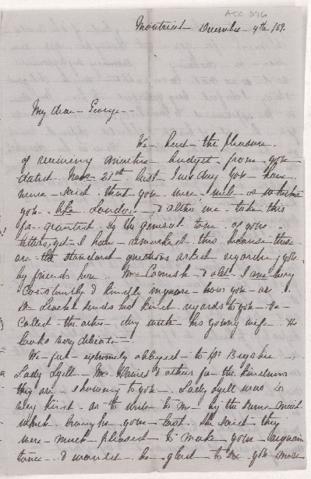 Montreal December 9th /59.
My dear George
We had the pleasure
of receiving another budget from you
dated Novr 21st last Tuesday you have
never said that you were well or whether
you like London. I allow me to take this
for granted by the general tone of your
letters yet I have remarked this because these
are the standard questions asked regarding you
by friends here. Mrs
constantly & kindly inquire how you are
Dr sends his kind regards to you he
called the other day with his young wife She
looks very delicate
We feel obliged to
Lady Lyell Mr & others for the kindness
they are showing to you. Lady Lyell was so
very kind as to write to me by the same mail
which brought your last. She said they
were much pleased to make your acquain
tance & would be glad to see you more